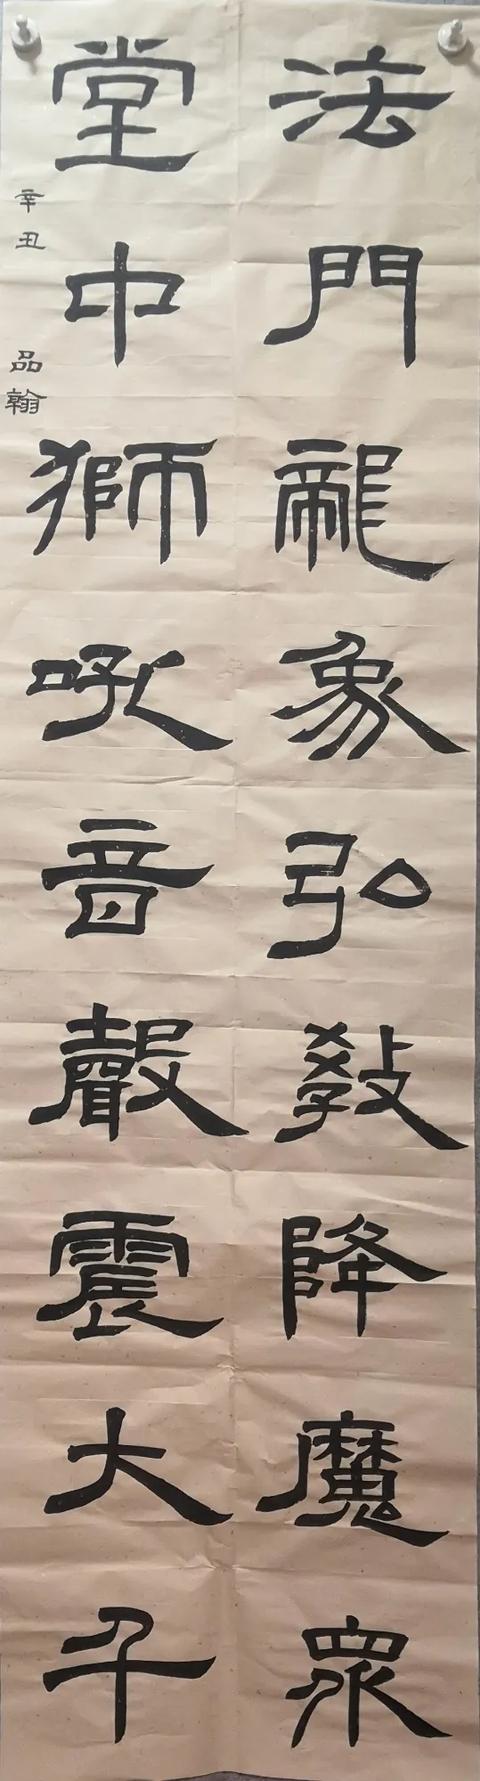 法門龍象弘教降魔眾
堂中獅吼音聲震大千
辛丑 品翰